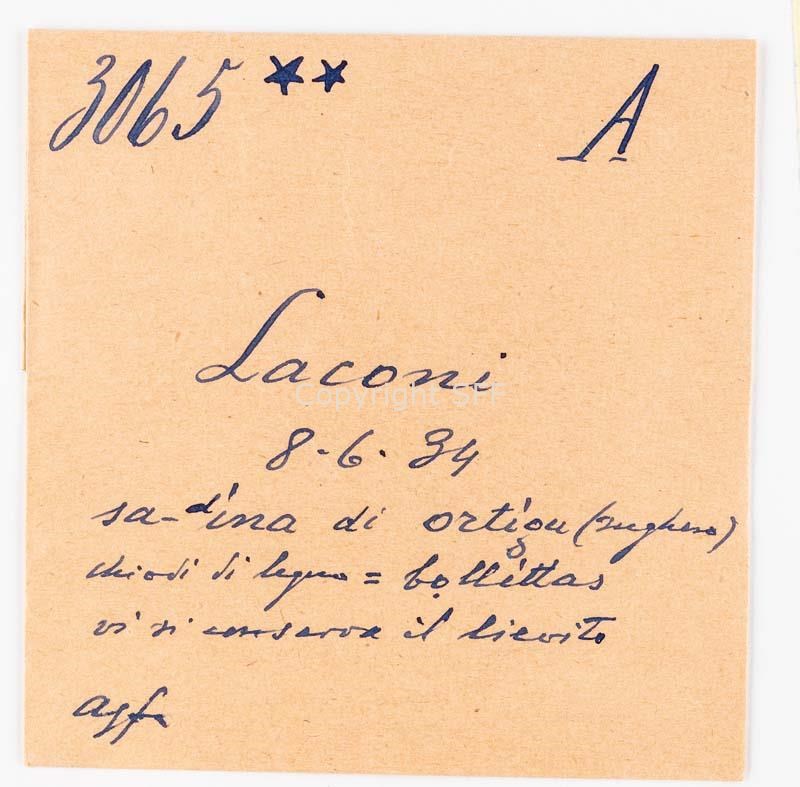 3065 ★★ A
Laconi
Copyright SFF
8.6.34
sa-dina di ortigu (sughero)
chiodi di legno = bollittas
vi si conserva il lievito
agfa